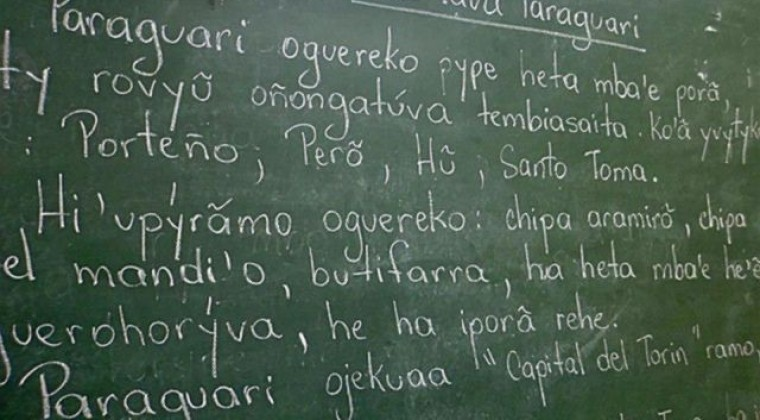 Paraguari
Paraguari oguereko pype heta mba'e porã,
ty rovyũ oñongatúva tembiasaita. Ko'ã yvytyk
: Porteño, Perõ, Hũ, Santo Toma.
Hi'upýrãmo oguereko: chipa aramirõ, chipa
el mandi'o, butifarra, ha heta mba'e he'ẽ
uerohorýva, he ha iporã rehe.
Paraguari ojekuaa "Capital del Torin" ramo,